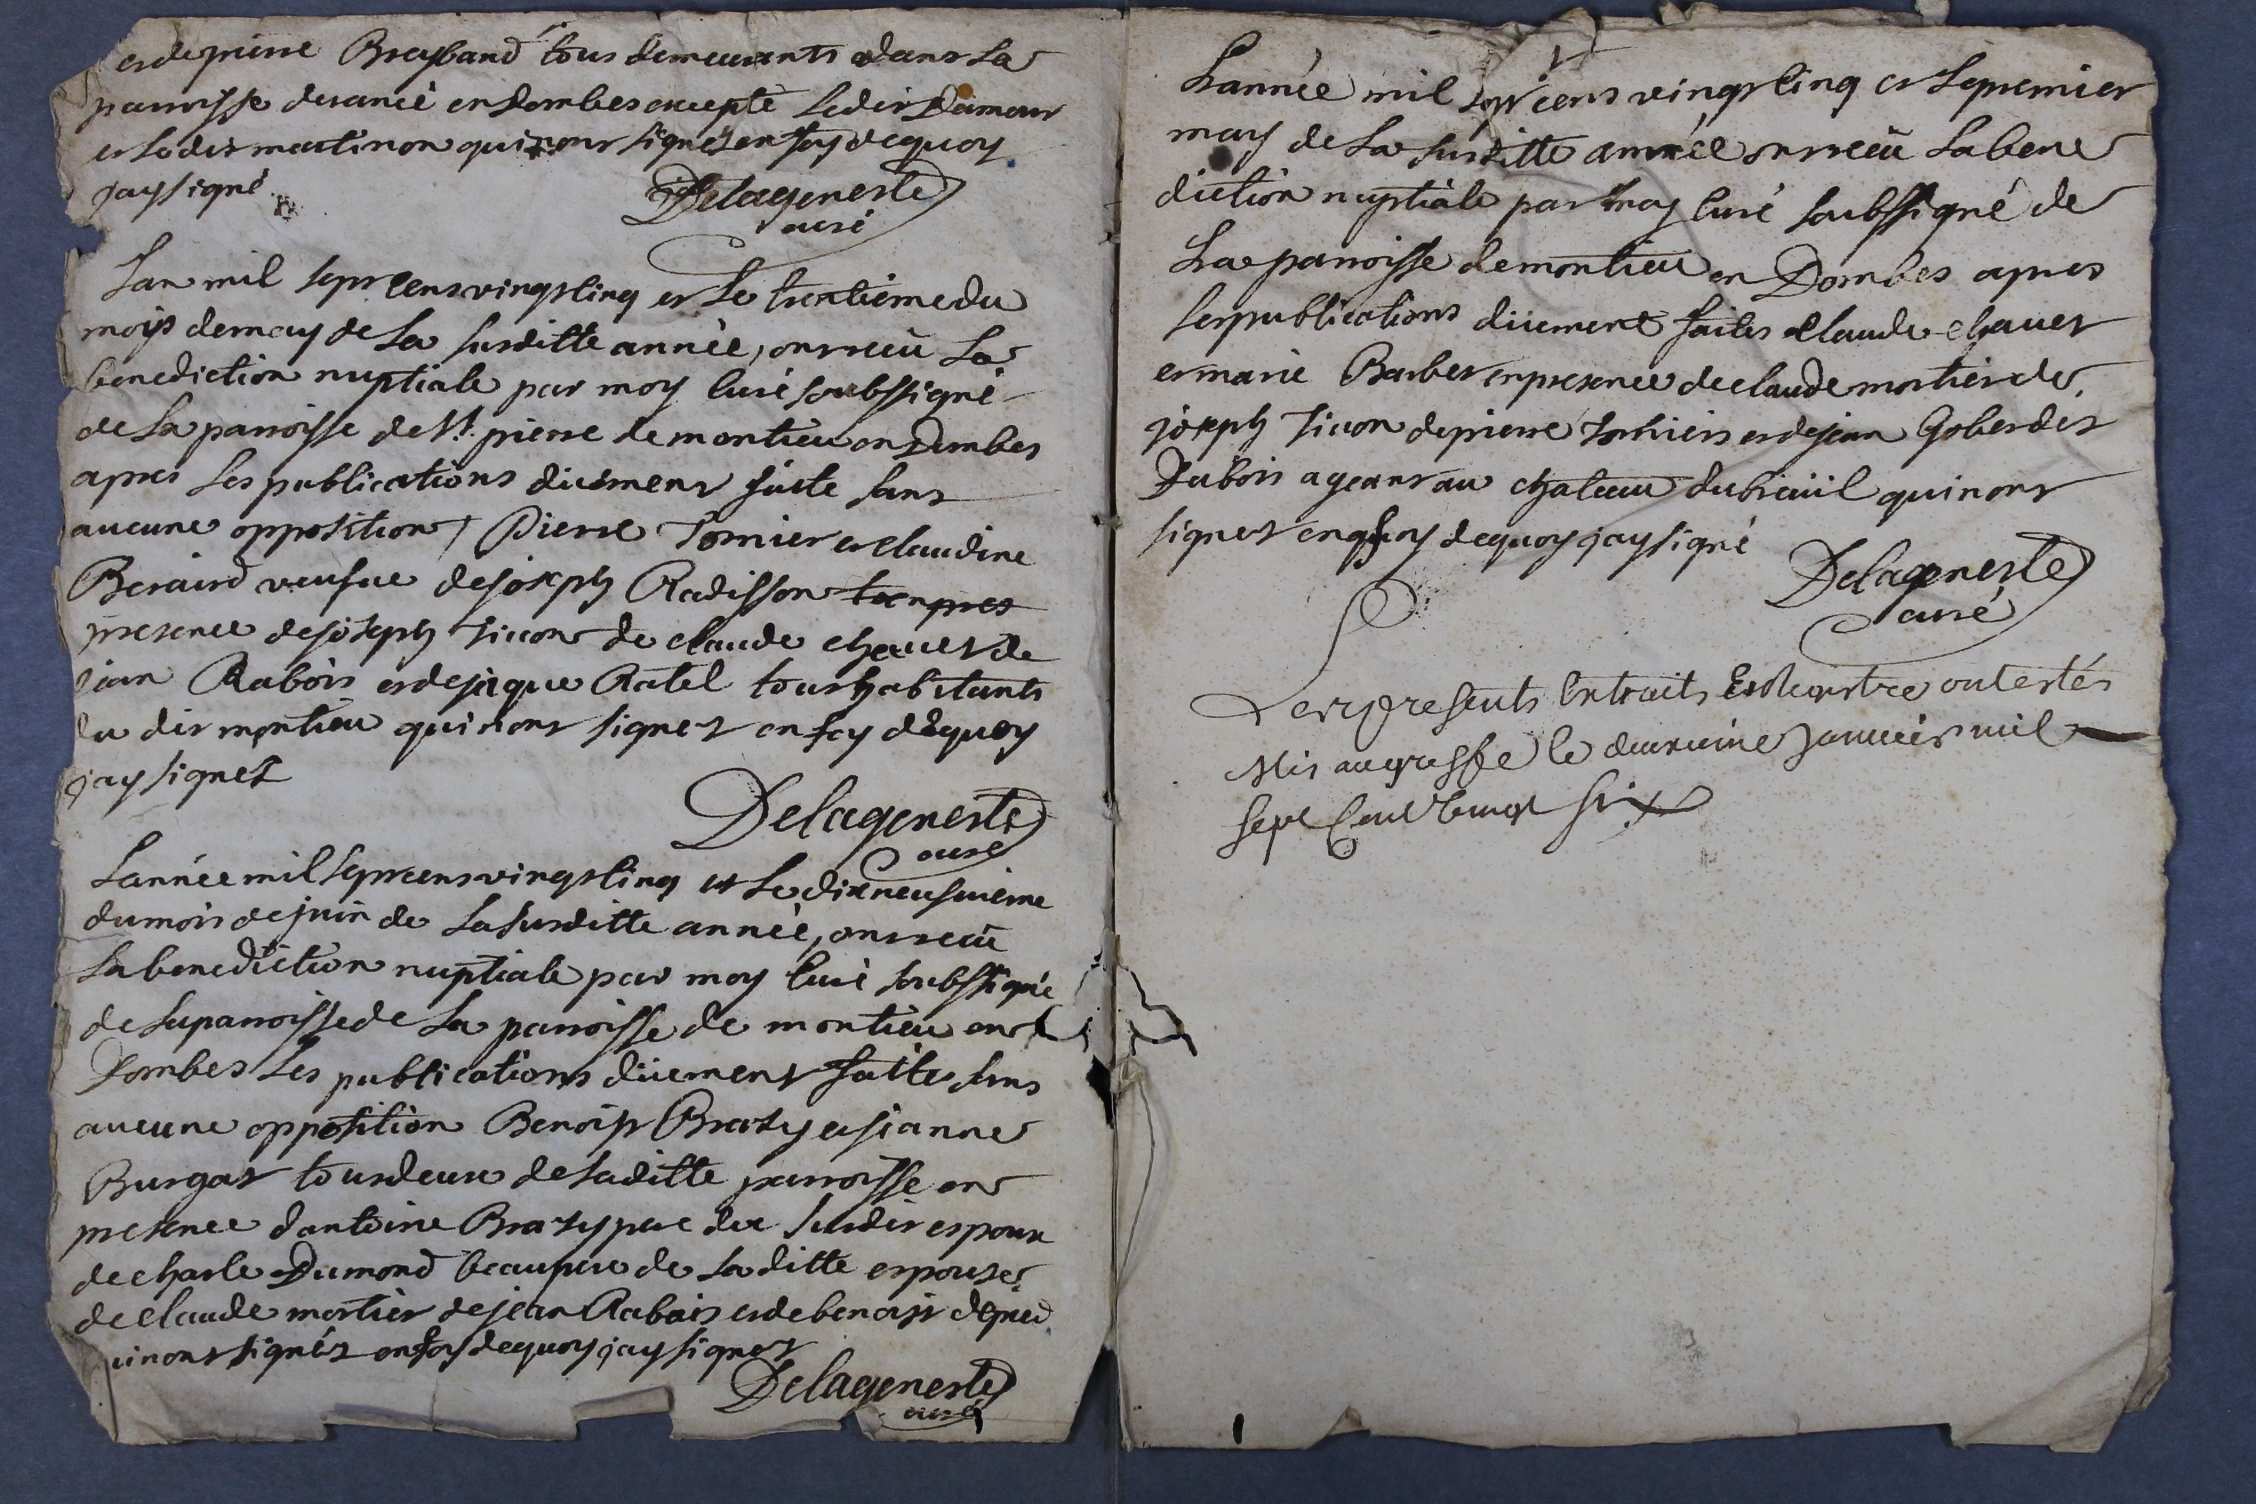 et de pierre Brayband tous demeurants dans La
parroisse de rancé en Dombes excepté Ledit Damour
et Ledit martinon qui nont signez en foy de quoy
jay signé
Delageneste
curé
Lan mil sept cens vingt cinq et Le trentieme du
mois de may de La susditte année, ont receü La
benediction nuptiale par moy curé soubssigné
de La parroisse de St. pierre de montieu en Dombes
apres Les publications düement faite sans
aucune opposition Pierre Tornier et claudine
Beraird veufue de joseph Radisson
presence de joseph Ticon de claude chavet de
jean Rabois et de jaque Ratel tous habitants
du dit montieu qui nont signet en foy de quoy
jay signet
Delageneste
curé
Lannée mil sept cens vingt cinq et Le dixneufuieme
du mois de juin de La susditte année, ont receü
La benediction nuptiale par moy curé soubssigné
de La parroisse de La parroisse de montieu en
Dombes Les publications düement faites sans
aucune opposition Benoist Brazy et jeanne
Burgat tous deux de Laditte parroisse en
presence dantoine Brazy pere du susdit espoux
de charle Dumond beaupere de Laditte espouse
de claude mortier de jean Rabois et de benoist
qui nont signés en foy de quoy jay signet
Delageneste
curé
Lannée mil sept cens vingt cinq et Le premier
may de La susditte année ont receü La bene
diction nuptiale par moy curé soubssigné de
La parroisse de montieu en Dombes apres
Les publications düement faites claude chavet
et marie Barbet en presence de claude mortier de
joseph Ticon de pierre et de jean Gobet dit
Dubois ageant au chateau du breüil qui nont
signet en foy de quoy jay signé
Delageneste
curé
Les presents Extraits Et Registre ont estés
Mis au greffe le deuxieme Janvier mil
sept Cent vingt six